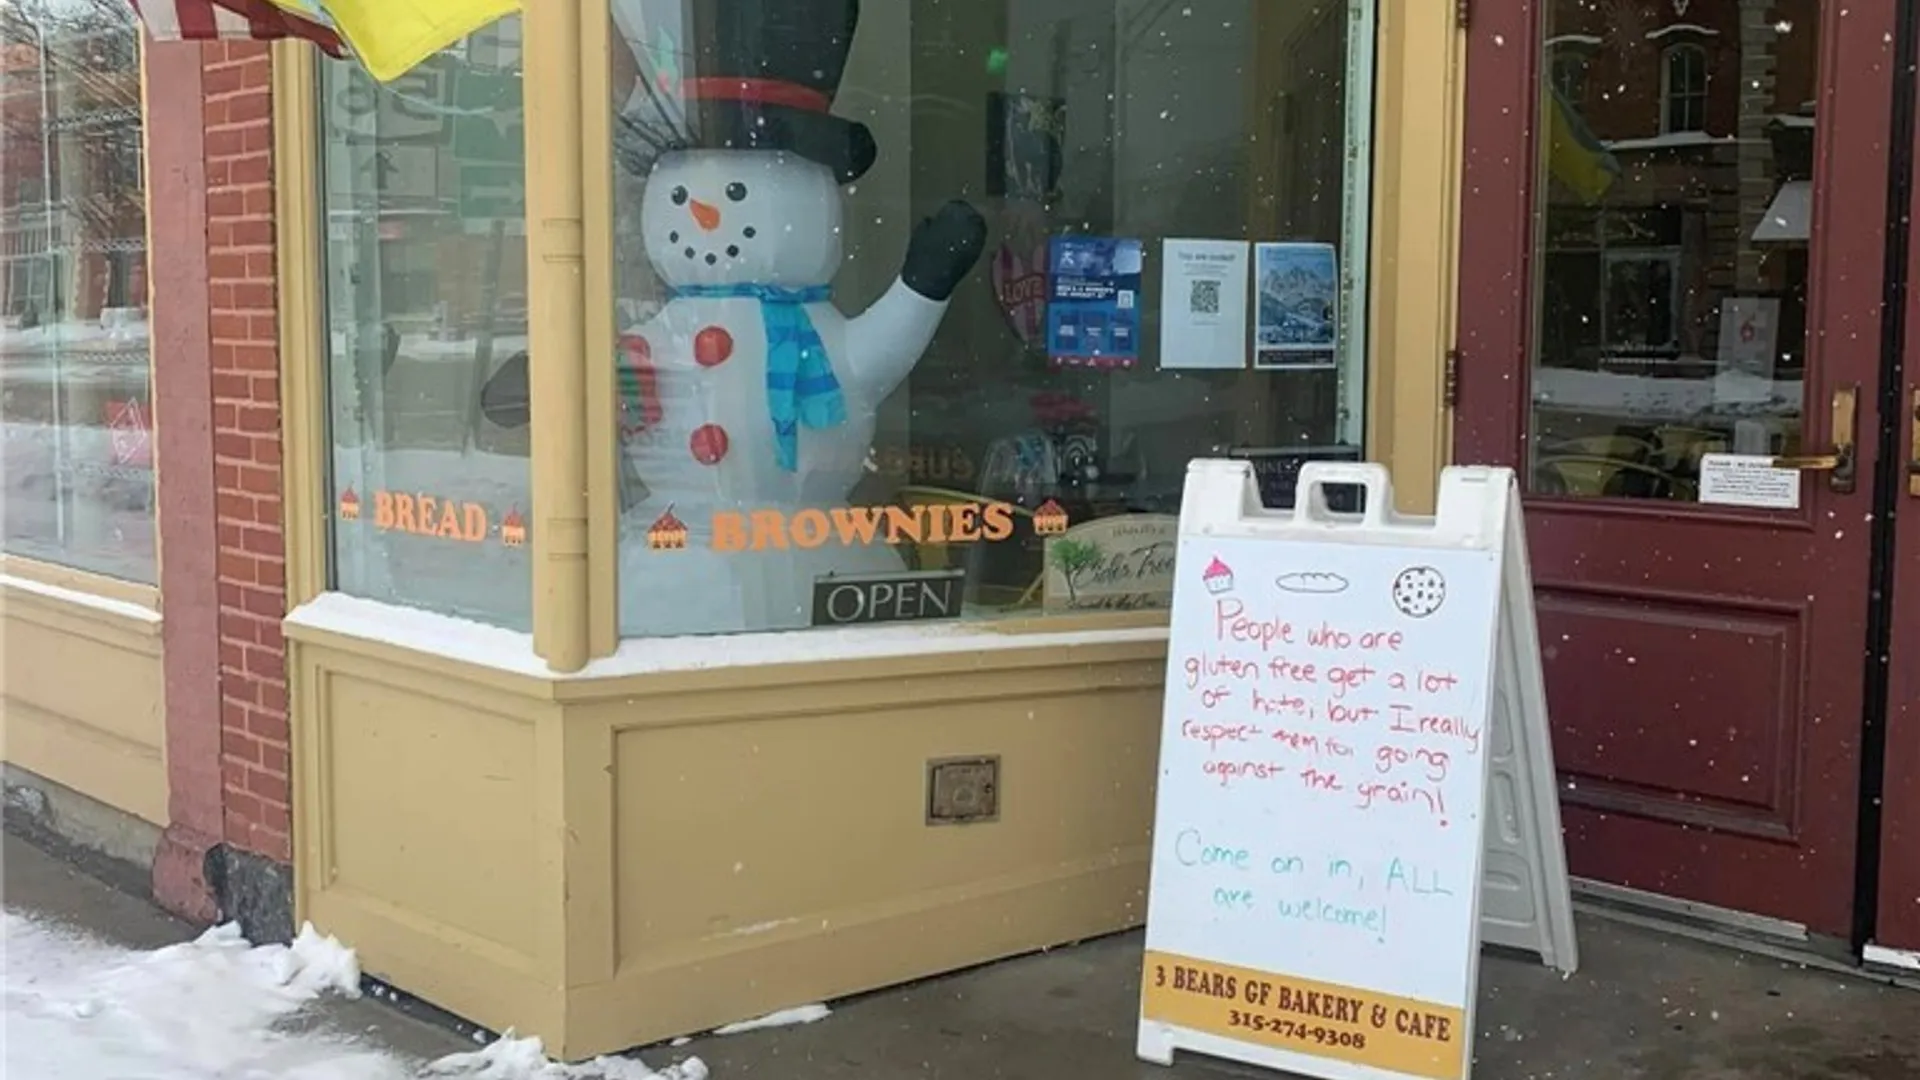 BREAD
BROWNIES
OPEN
LOVE
You are invited!
Cider Tree
People who are
gluten free get a lot
of hate, but I really
respect them for going
against the grain!
Come on in, ALL
are welcome!
3 BEARS GF BAKERY & CAFE
315-274-9308